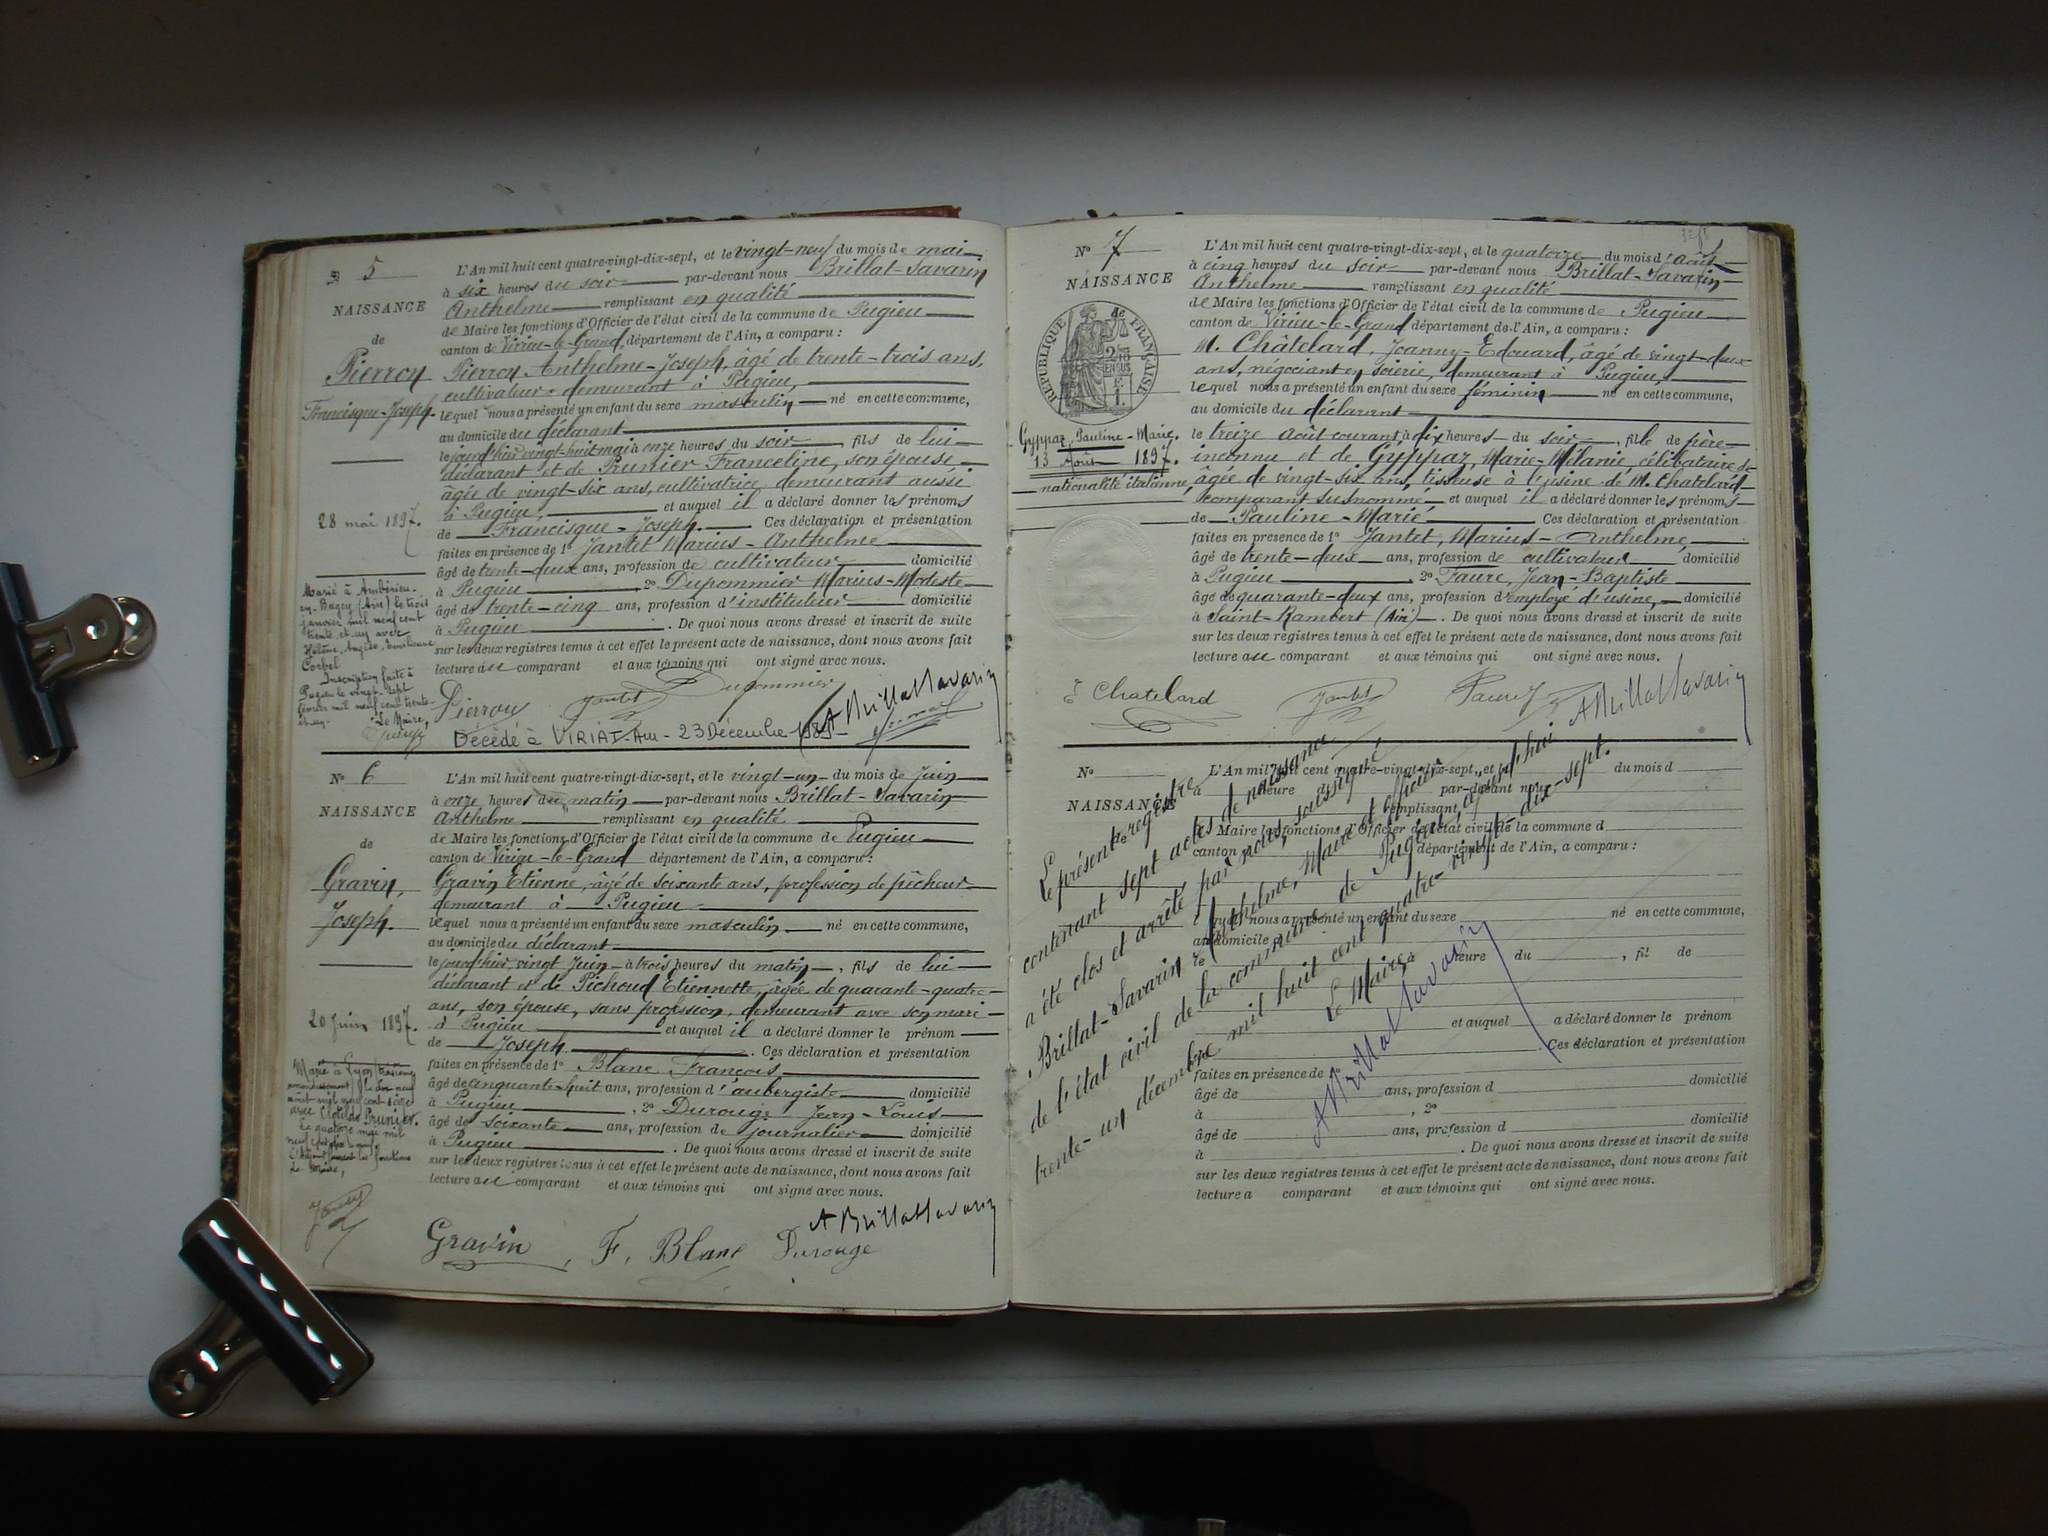 N° 5
NAISSANCE
de
Pierron
Francisque-Joseph.
28 mai 1897.
Marié à Ambérieu-
en-Bugey (Ain) le trois
janvier mil neuf cent
trente et un avec
Corbel
Inscription faite à
Pugieu le vingt-sept
février mil neuf cent trente-
et-un.
Le Maire,
L'An mil huit cent quatre-vingt-dix-sept, et le vingt-neuf du mois de mai
à six heures du soir par-devant nous Brillat-Savarin
Anthelme remplissant en qualité
de Maire les fonctions d'Officier de l'état civil de la commune de Pugieu
canton de Virieu-le-Grand département de l'Ain, a comparu :
Pierron Anthelme-Joseph, âgé de trente-trois ans,
cultivateur demeurant à Pugieu,
lequel nous a présenté un enfant du sexe masculin né en cette commune,
au domicile du déclarant
le jourd'hier vingt-huit mai à onze heures du soir, fils de lui
déclarant et de Prunier Franceline, son épouse
âgée de vingt-six ans, cultivatrice demeurant aussi
à Pugieu, et auquel il a déclaré donner les prénoms
de Francisque-Joseph. Ces déclaration et présentation
faites en présence de 1° Jantet Marius-Anthelme
âgé de trente-deux ans, profession de cultivateur domicilié
à Pugieu, 2° Dupommier Marius-Modeste
âgé de trente-cinq ans, profession d'instituteur domicilié
à Pugieu. De quoi nous avons dressé et inscrit de suite
sur les deux registres tenus à cet effet le présent acte de naissance, dont nous avons fait
lecture au comparant et aux témoins qui ont signé avec nous.
Pierron Jantet Dupommier A Brillat Savarin
Décédé à VIRIAT-Ain - 23 Décembre
N° 6
NAISSANCE
de
Gravin,
Joseph.
20 juin 1897.
Marié à Lyon troisième
arrondissement le dix neuf
août mil neuf cent seize
avec Clotilde Prunier.
Le quatorze mai mil
L'Adjoint faisant les fonctions
de Maire,
Jantet
L'An mil huit cent quatre-vingt-dix-sept, et le vingt-un du mois de Juin
à onze heures du matin par-devant nous Brillat-Savarin
Anthelme remplissant en qualité
de Maire les fonctions d'Officier de l'état civil de la commune de Pugieu
canton de Virieu-le-Grand département de l'Ain, a comparu :
Gravin Etienne, âgé de soixante ans, profession de pêcheur
demeurant à Pugieu
lequel nous a présenté un enfant du sexe masculin né en cette commune,
au domicile du déclarant
le jourd'hier, vingt Juin à trois heures du matin, fils de lui
déclarant et de Pichoud Etiennette, âgée de quarante-quatre
ans, son épouse, sans profession, demeurant avec son mari
à Pugieu et auquel il a déclaré donner le prénom
de Joseph. Ces déclaration et présentation
faites en présence de 1° Blanc François
âgé de cinquante-huit ans, profession d'aubergiste domicilié
à Pugieu, 2° Durouge Jean-Louis
âgé de soixante ans, profession de journalier domicilié
à Pugieu. De quoi nous avons dressé et inscrit de suite
sur les deux registres tenus à cet effet le présent acte de naissance, dont nous avons fait
lecture au comparant et aux témoins qui ont signé avec nous.
A Brillat Savarin
Gravin, F. Blanc Durouge
N° 7
NAISSANCE
RÉPUBLIQUE FRANÇAISE
Gyppaz, Pauline-Marie.
13 Août 1897.
nationalité italienne,
L'An mil huit cent quatre-vingt-dix-sept, et le quatorze du mois d'Août
à cinq heures du soir par-devant nous Brillat-Savarin
Anthelme remplissant en qualité
de Maire les fonctions d'Officier de l'état civil de la commune de Pugieu
canton de Virieu-le-Grand département de l'Ain, a comparu :
M. Châtelard, Joanny-Edouard, âgé de vingt-deux
ans, négociant en soierie, demeurant à Pugieu,
lequel nous a présenté un enfant du sexe féminin né en cette commune,
au domicile du déclarant
le treize Août courant à dix heures du soir, fille de père
inconnu et de Gyppaz, Marie-Mélanie, célibataire
âgée de vingt-six ans, tisseuse à l'usine de M. Chatelard
comparant susnommé et auquel il a déclaré donner les prénoms
de Pauline-Marie Ces déclaration et présentation
faites en présence de 1° Jantet, Marius-Anthelme,
âgé de trente-deux ans, profession de cultivateur domicilié
à Pugieu 2° Faure, Jean-Baptiste
âgé de quarante-deux ans, profession d'employé d'usine, domicilié
à Saint-Rambert (Ain). De quoi nous avons dressé et inscrit de suite
sur les deux registres tenus à cet effet le présent acte de naissance, dont nous avons fait
lecture au comparant et aux témoins qui ont signé avec nous.
E Chatelard Jantet Faure J A Brillat Savarin
N°
NAISSANCE
de
L'An mil huit cent quatre-vingt-dix-sept, et le du mois d
à heure d par-devant nous
remplissant
d Maire les fonctions d'Officier de l'état civil de la commune d
canton d département de l'Ain, a comparu :
lequel nous a présenté un enfant du sexe né en cette commune,
au domicile d
le à heure du , fil de
et auquel a déclaré donner le prénom
Ces déclaration et présentation
faites en présence de
âgé de ans, profession d domicilié
à , 2°
âgé de ans, profession d domicilié
à . De quoi nous avons dressé et inscrit de suite
sur les deux registres tenus à cet effet le présent acte de naissance, dont nous avons fait
lecture a comparant et aux témoins qui ont signé avec nous.
Le présent registre
contenant sept actes de naissance
a été clos et arrêté par nous, soussigné
Brillat-Savarin Anthelme, Maire et officier
de l'état civil de la commune de Pugieu, aujourd'hui
trente-un décembre mil huit cent quatre-vingt-dix-sept.
Le Maire,
A Brillat Savarin